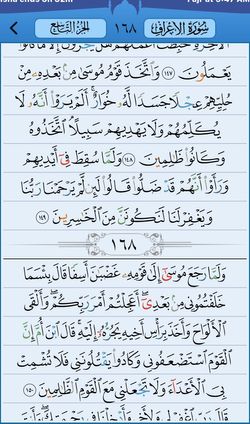 سُورَةُ الْأَعْرَافِ ١٦٨ الجُزْءُ التَّاسِعُ
يَعْمَلُونَ ١٤٧ وَاتَّخَذَ قَوْمُ مُوسَىٰ مِنْ بَعْدِهِ مِنْ
حُلِيِّهِمْ عِجْلًا جَسَدًا لَهُ خُوَارٌ أَلَمْ يَرَوْا أَنَّهُ لَا
يُكَلِّمُهُمْ وَلَا يَهْدِيهِمْ سَبِيلًا اتَّخَذُوهُ
وَكَانُوا ظَالِمِينَ ١٤٨ وَلَمَّا سُقِطَ فِي أَيْدِيهِمْ
وَرَأَوْا أَنَّهُمْ قَدْ ضَلُّوا قَالُوا لَئِنْ لَمْ يَرْحَمْنَا رَبُّنَا
وَيَغْفِرْ لَنَا لَنَكُونَنَّ مِنَ الْخَاسِرِينَ ١٤٩
١٦٨
وَلَمَّا رَجَعَ مُوسَىٰ إِلَىٰ قَوْمِهِ غَضْبَانَ أَسِفًا قَالَ بِئْسَمَا
خَلَفْتُمُونِي مِنْ بَعْدِي أَعَجِلْتُمْ أَمْرَ رَبِّكُمْ وَأَلْقَى
الْأَلْوَاحَ وَأَخَذَ بِرَأْسِ أَخِيهِ يَجُرُّهُ إِلَيْهِ قَالَ ابْنَ أُمَّ إِنَّ
الْقَوْمَ اسْتَضْعَفُونِي وَكَادُوا يَقْتُلُونَنِي فَلَا تُشْمِتْ
بِيَ الْأَعْدَاءَ وَلَا تَجْعَلْنِي مَعَ الْقَوْمِ الظَّالِمِينَ ١٥٠